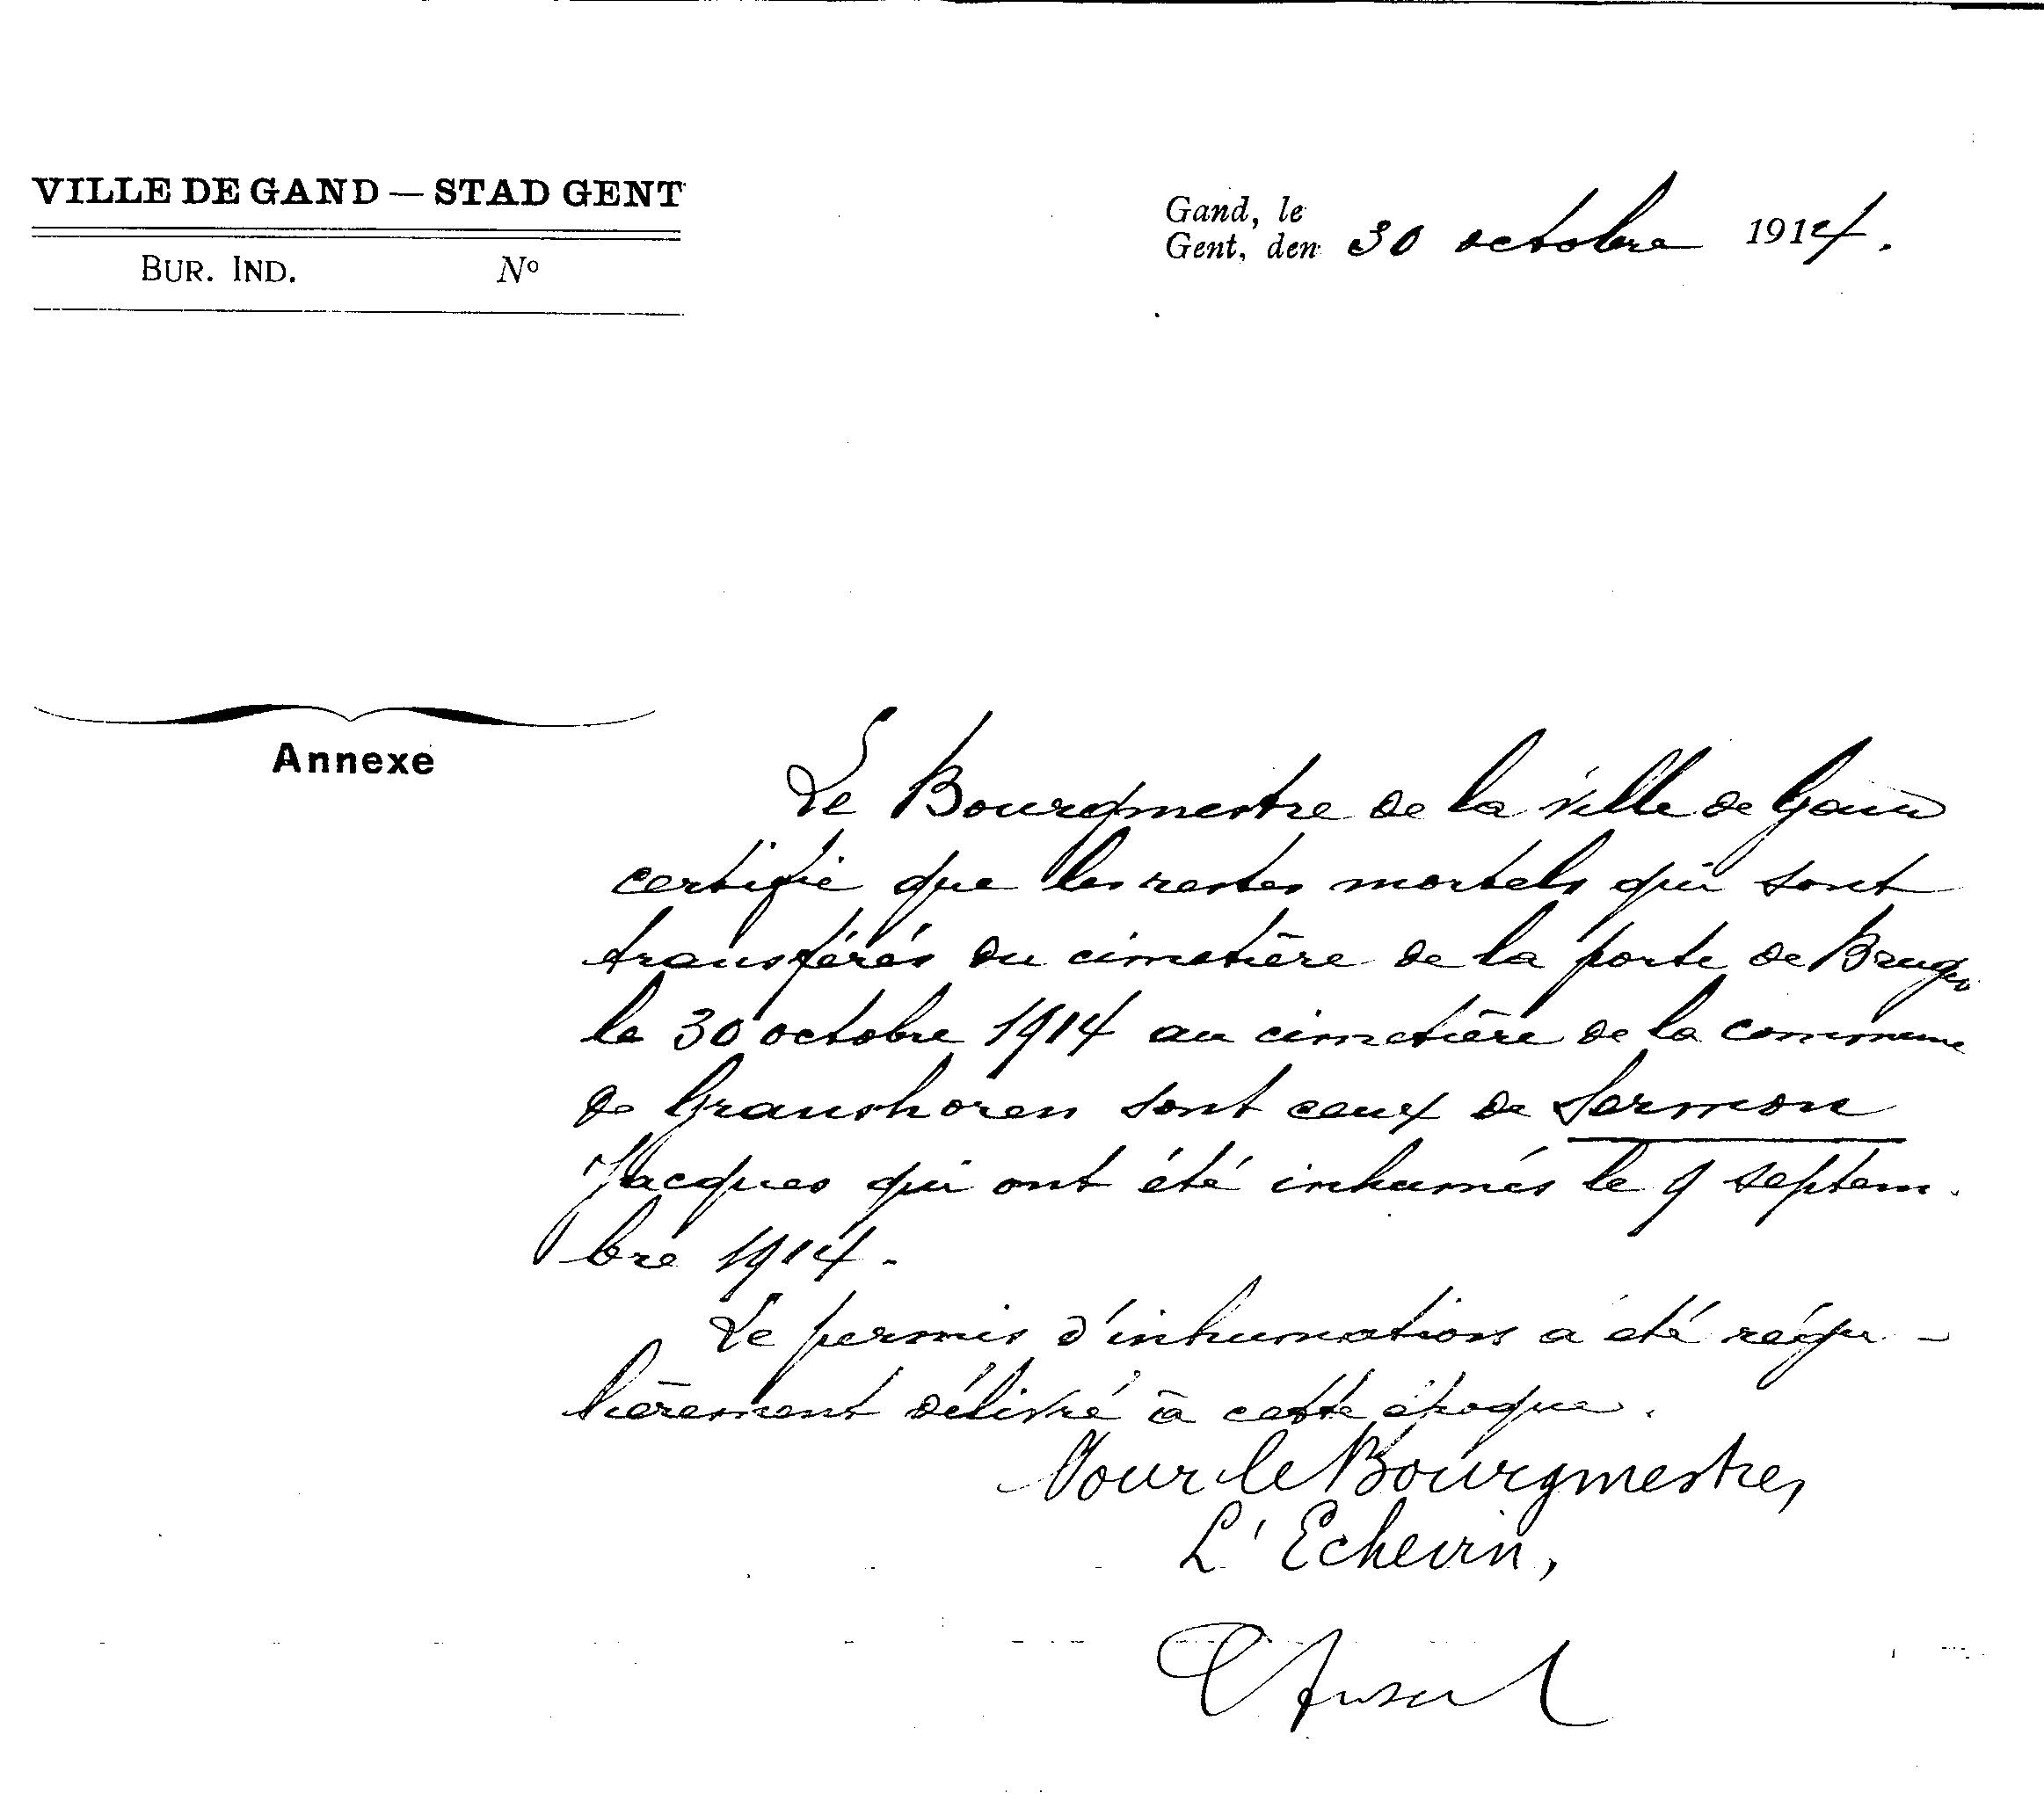 VILLE DE GAND — STAD GENT
BUR. IND. Nº
Gand, le
Gent, den 30 octobre 1914.
Annexe
Le Bourgmestre de la ville de Gand
certifie que les restes mortels qui sont
transférés du cimetière de la porte de Bruges
le 30 octobre 1914 au cimetière de la commune
de Ganshoren sont ceux de Sermon
Jacques qui ont été inhumés le 9 septem-
bre 1914.
Le permis d'inhumation a été régu-
lièrement délivré à cette époque.
Pour le Bourgmestre,
L'Echevin,